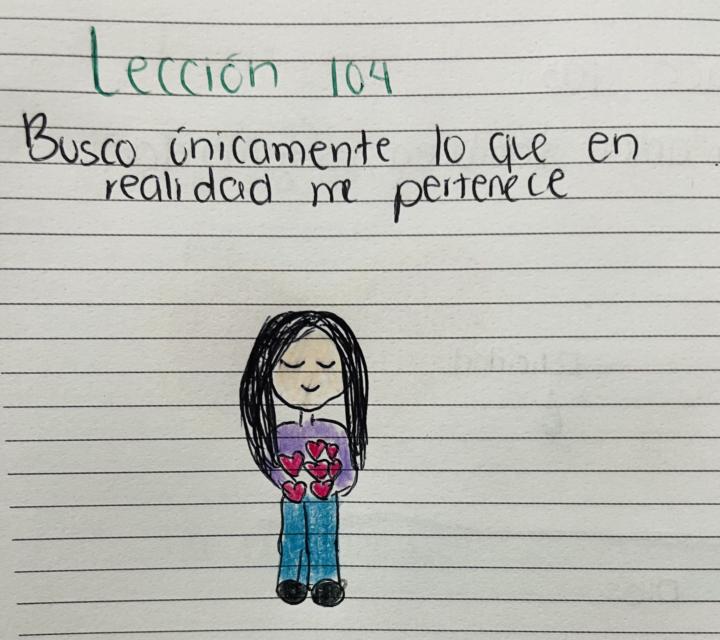 Lección 104
Busco únicamente lo que en
realidad me pertenece